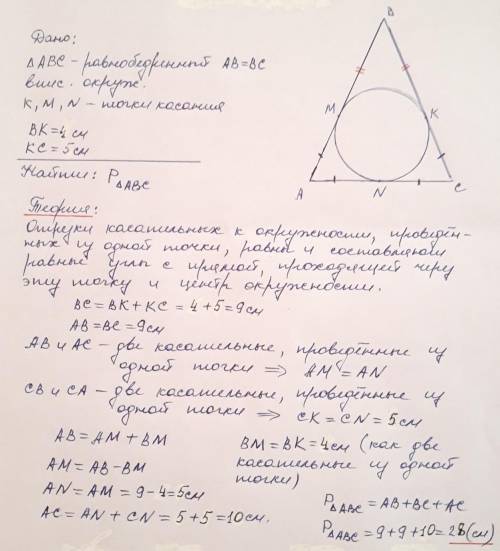 Дано:
△ABC – равнобедренный AB=BC
впис. окруж.
K, M, N – точки касания
BK=4 см
KC=5см
Найти: P△ABC
B
M
K
A
N
C
Теория:
Отрезки касательных к окружности, проведён-
ных из одной точки, равны и составляют
равные углы с прямой, проходящей через
эту точку и центр окружности.
BC = BK + KC = 4+5=9см
AB=BC=9см
AB и AC – две касательные, проведённые из
одной точки ⟹ AM = AN
CB и CA – две касательные, проведённые из
одной точки ⟹ CK = CN = 5см
AB = AM + BM
AM = AB – BM
AN = AM = 9 – 4 = 5см
AC = AN + CN = 5+5=10см.
BM = BK = 4см (как две
касательные из одной
точки)
P△ABC = AB+BC+AC
P△ABC = 9+9+10=28(см)